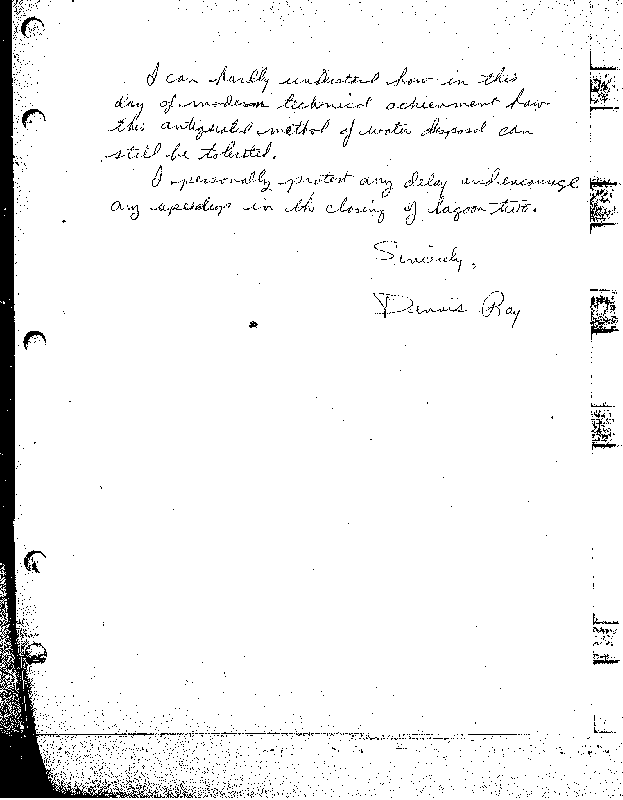 I can hardly understand how in this
day of modern technical achievement how
this antiquated method of water disposal can
still be tolerated.
I personally protest any delay and encourage
any speedup in the closing of lagoon two.
Sincerely,
Dennis Ray